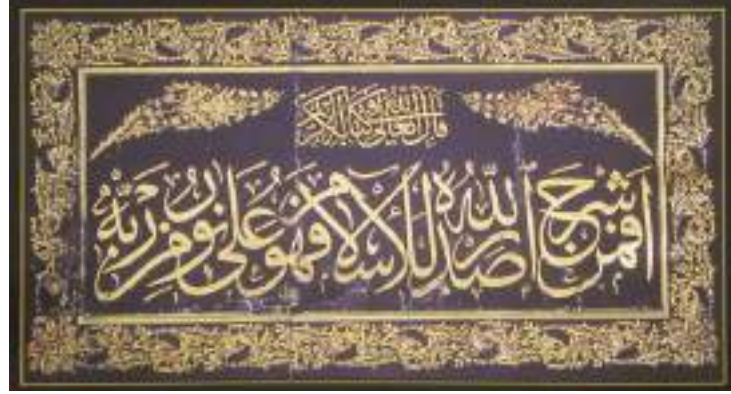 قال الله تعالى في كتابه الكريم
أفمن شرح الله صدره للإسلام فهو على نور من ربه